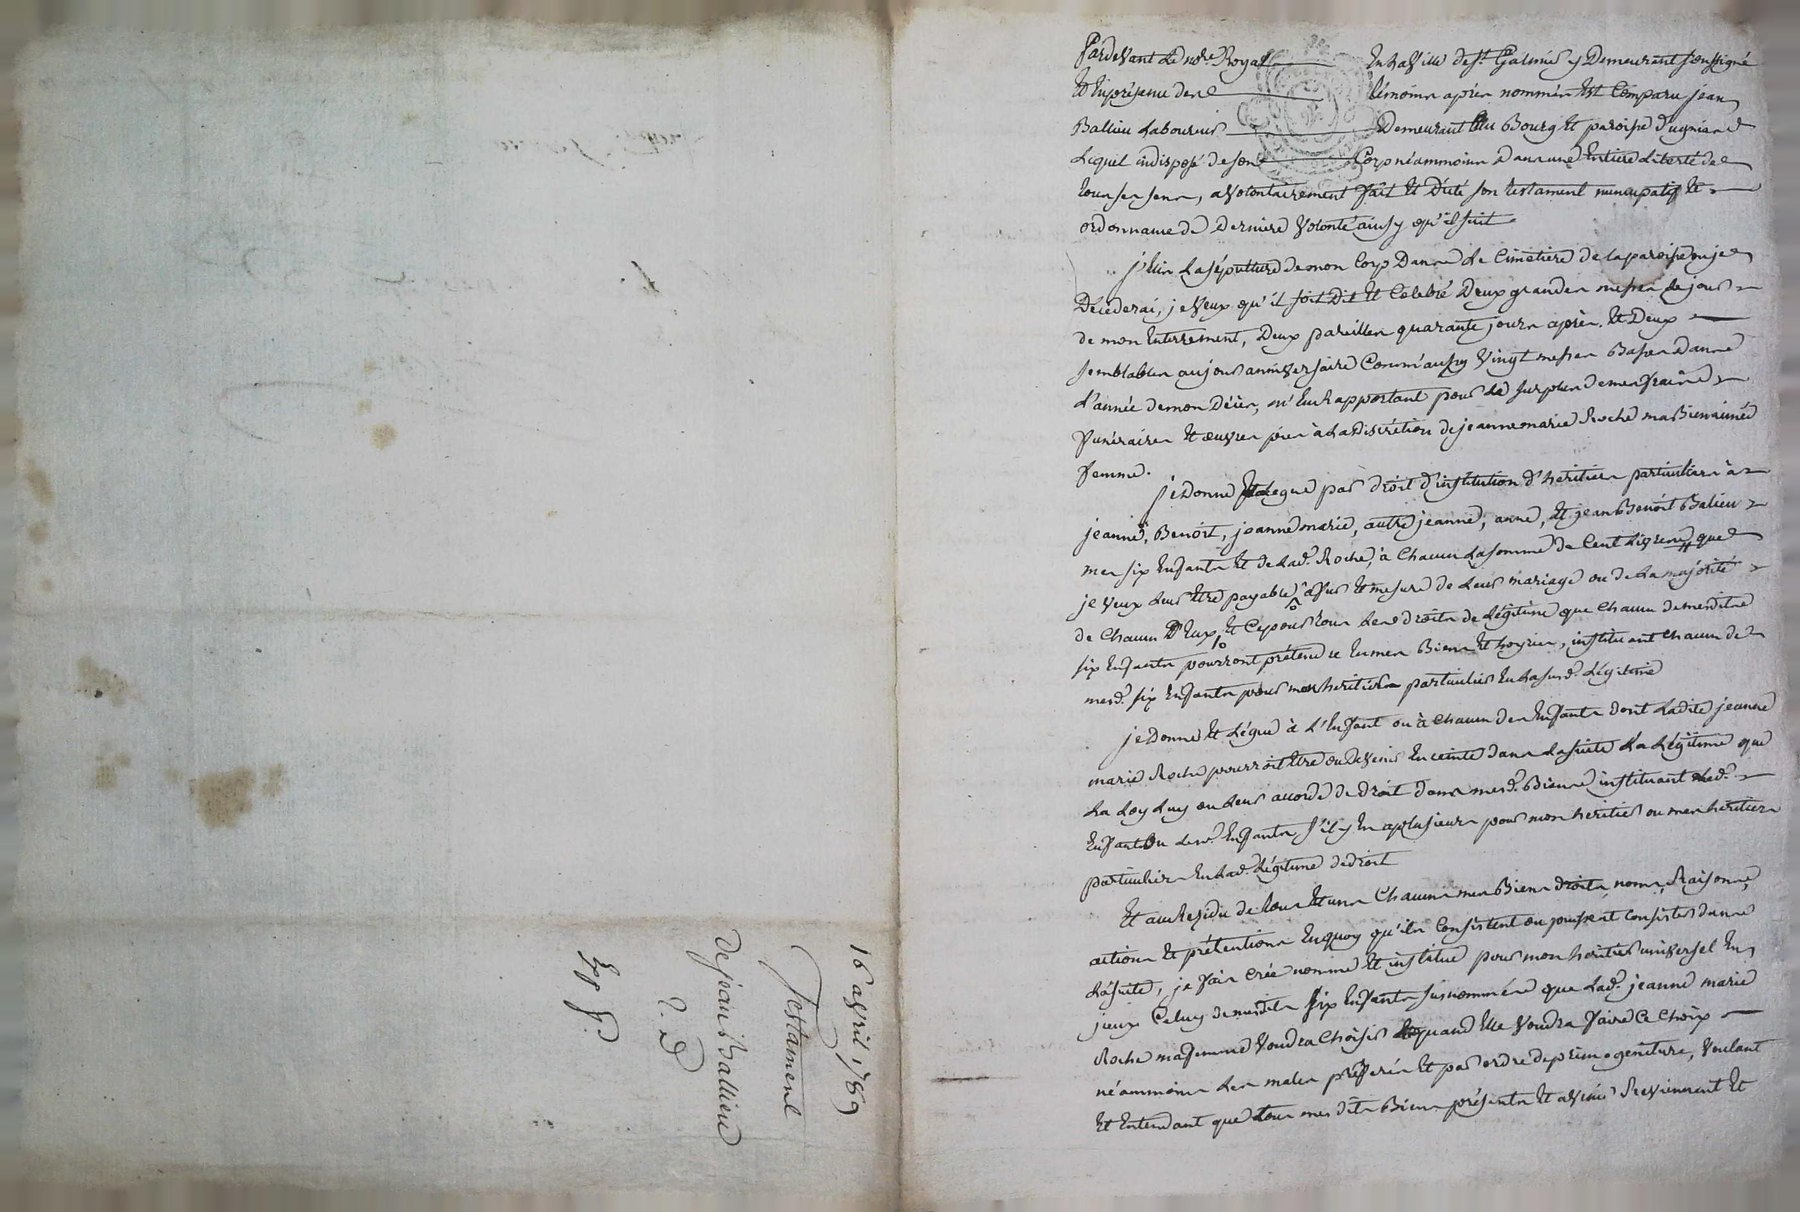 16 avril 1789
Testament
De jean Ballieu
2. D
Exp g.
Pardevant Le no.re Royal En La Ville de st Galmier y Demeurant soussigné
Et En presence des temoins après nommés Est Comparu jean
Ballieu Laboureur Demeurant au Bourg Et paroisse d'
Lequel indisposé de son Corp néammoins Dans une Entiere Liberté de
tous ses sens, a Volontairement fait Et Dicté son testament nuncupatif Et
ordonnance de Derniere Volonté ainsy qu'il suit
j'Elis La sépulture de mon Corp Dans Le Cimetiere de la paroisse ou je
Décederai, je Veux qu'il soit Dit Et Celebré Deux grandes messes le jour
de mon Enterrement, Deux pareilles quarante jours après, Et Deux
semblables au jour anniversaire Comm'aussy Vingt messes Basses Dans
L'année de mon Décès, m'En Rapportant pour Le surplus de mes frais
funéraires Et œuvres pies à La Discrétion de jeanne marie Roche ma Bienaimée
femme.
je Donne Et Legue par droit d'institution d'héritiers particuliers à
jeanne, Benoit, jeanne marie, autre jeanne, anne, Et jean Benoit Balieu
mes six Enfants Et de Lad. Roche, à Chacun La somme de Cent Livres, que
je Veux Leur Etre payable à fur Et mesure de Leur mariage ou de La majorité
de Chacun D'Eux, Et Ce pour tous Les droits de Légitime que Chacun de mesdits
six Enfants pourront prétendre En mes Biens Et hoyries, instituant Chacun de
mesd. six Enfants pour mes heritiers particuliers En La susd. Légitime
je Donne Et Légue à L'Enfant ou à Chacun des Enfants dont Ladite jeanne
marie Roche pourroit Etre ou Devenir Enceinte dans La suite La Légitime que
La Loy Luy ou Leur accorde de droit dans mesd. Biens instituant Led.
Enfant ou Lesd. Enfants s'il y En a plusieurs pour mon heritier ou mes heritiers
particuliers En Lad. Légitime de droit
Et au Residu de tous Et uns Chacuns mes Biens droits, noms, Raisons,
actions Et prétentions En quoy qu'ils Consistent ou puissent Consister dans
La suite, je fais Crée nomme Et institue pour mon heritier universel En
jceux Celuy de mesdits six Enfants susnommés que Lad. jeanne marie
Roche ma femme Voudra Choisir Et quand Elle Voudra faire Ce Choix
néammoins Les males préférés Et par ordre de primogeniture, Voulant
Et Entendant que tous mes dits Biens présents Et avenir Reviennent Et